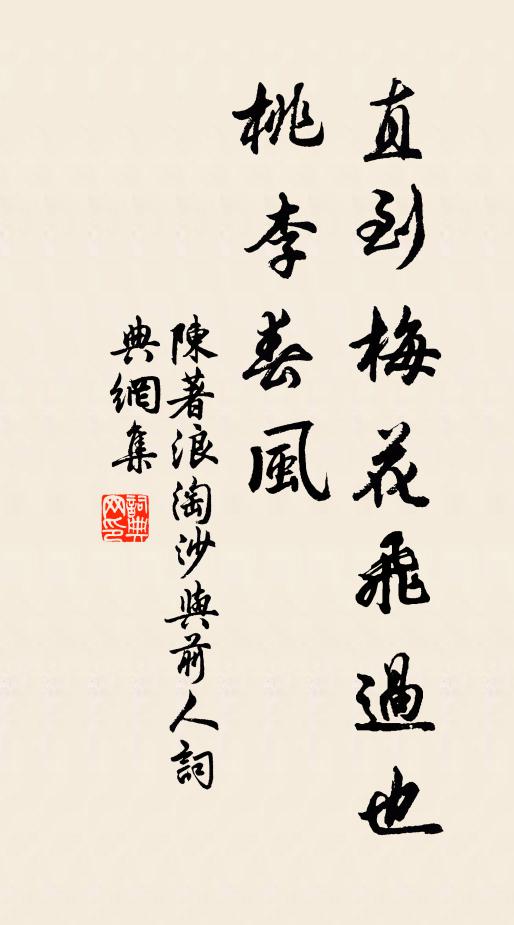 直到梅花飛過也
桃李春風
陳著浪淘沙與前人詞
典網集
詞典网印